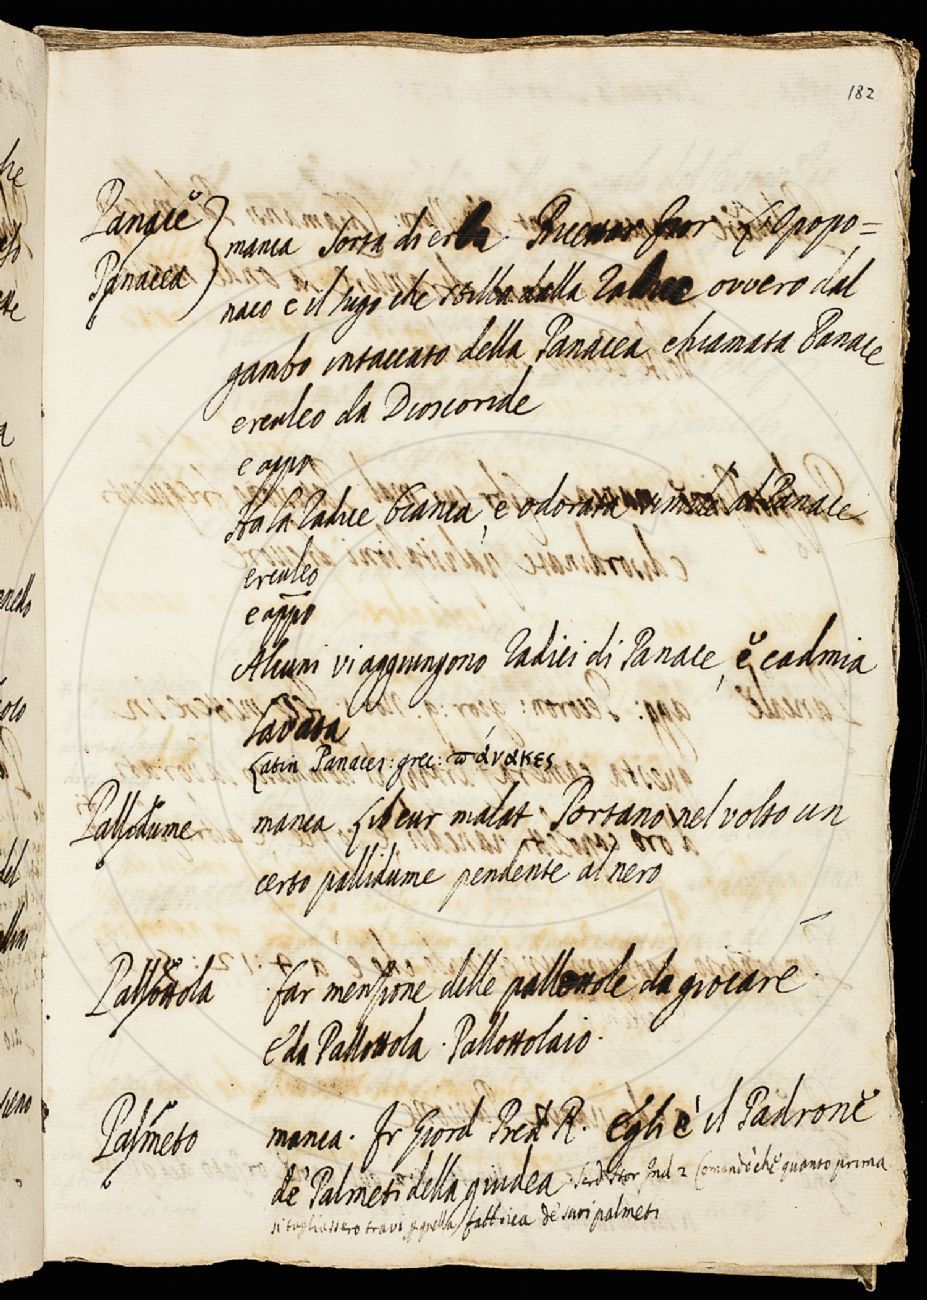 182
Panace
Panacea
manca Sorta di erba Ricettar fior L'Opopo=
naco e il sugo che stilla dalla Radice ovvero dal
gambo intaccato della Panacea chiamata Panace
erculeo da Dioscoride
e appo
Ha la Radice bianca, e odorata simile al Panace
erculeo
e appo
Alcuni vi aggiungono Radici di Panace, e cadmia
lavata
Latin Panaces: grec: πάνακες
Pallidume manca Lib cur malat Portano nel volto un
certo pallidume pendente al nero
Pallottola far menzione delle pallottole da giocare
E da Pallottola. Pallottolaio.
Palmeto manca. Fr Giord Pred R. Egli è il Padrone
de' Palmeti della giudea Serd Stor Ind 2 Comandò che quanto prima
si tagliassero travi p quella fabbrica de' suoi palmeti